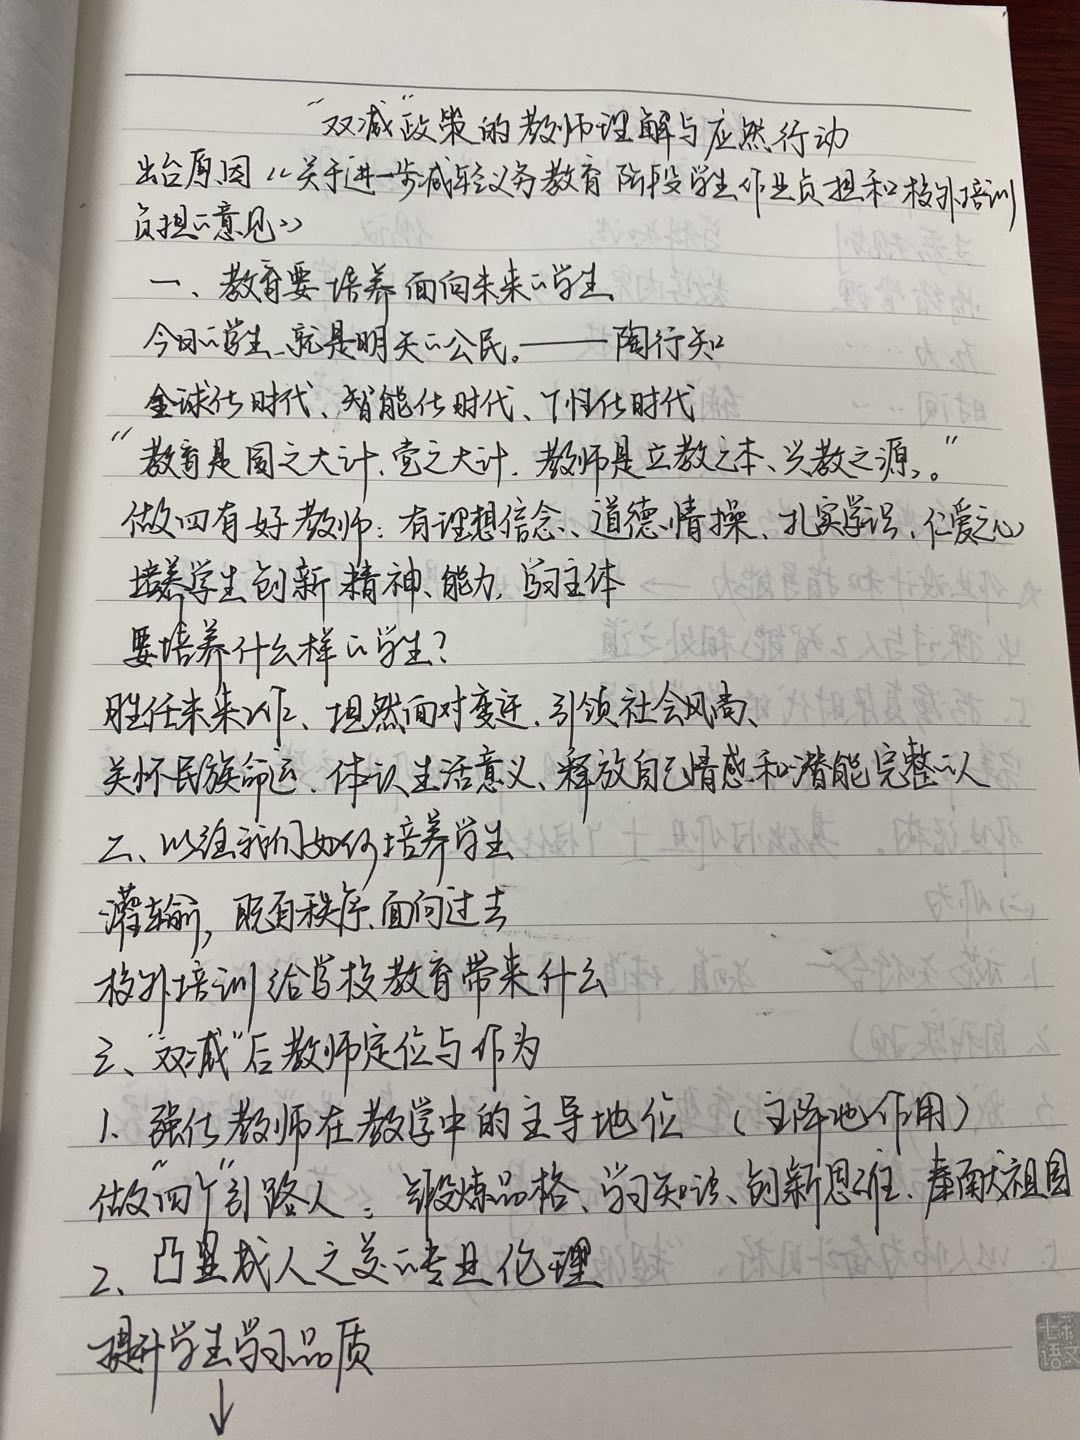 “双减”政策的教师理解与应然行动
出台原因《关于进一步减轻义务教育阶段学生作业负担和校外培训
负担的意见》
一、教育要培养面向未来的学生
今日的学生就是明天的公民。——陶行知
全球化时代、智能化时代、个性化时代
“教育是国之大计、党之大计. 教师是立教之本、兴教之源。”
做四有好教师：有理想信念、道德情操、扎实学识、仁爱之心
培养学生创新精神、能力, 学习主体
要培养什么样的学生?
胜任未来工作、坦然面对变迁、引领社会风尚、
关怀民族命运、体认生活意义、释放自己情感和潜能完整的人
二、以往我们如何培养学生
灌输，既有秩序、面向过去
校外培训给学校教育带来什么
三、“双减”后教师定位与作为
1、强化教师在教学中的主导地位 (主阵地作用)
做“四个”引路人：锻炼品格、学习知识、创新思维、奉献祖国
2、凸显成人之美的专业伦理
提升学生学习品质
↓
七采
语文